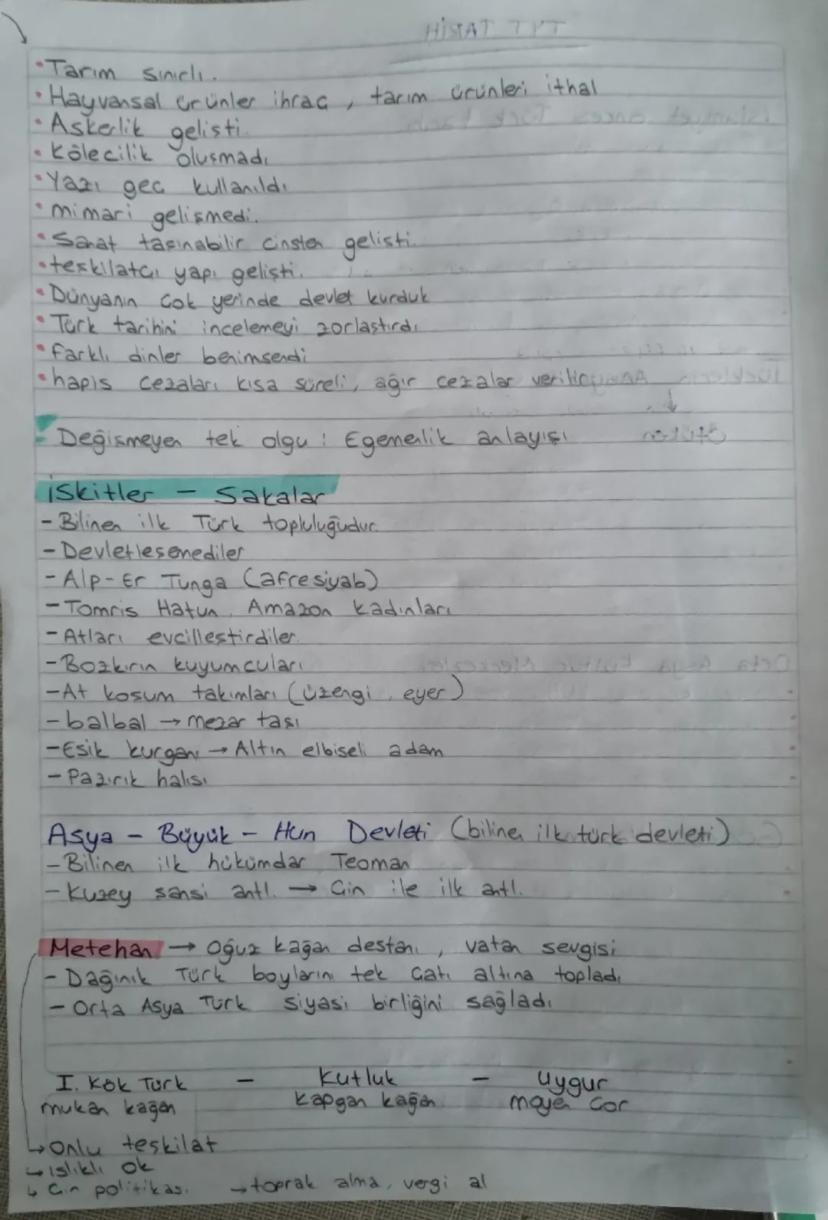 • Tarım sınırlı.
• Hayvansal ürünler ihraç, tarım ürünleri ithal
• Askerlik gelişti.
• Kölecilik oluşmadı
• Yazı geç kullanıldı
• mimari gelişmedi.
• Sanat taşınabilir cinsten gelişti.
• teşkilatçı yapı gelişti.
• Dünyanın çok yerinde devlet kurduk
• Türk tarihini incelemeyi zorlaştırdı
• farklı dinler benimsendi
• hapis cezaları kısa süreli, ağır cezalar
Değişmeyen tek olgu : Egemenlik anlayışı
iskitler - Sakalar
- Bilinen ilk Türk topluluğudur
- Devletleşemediler
- Alp-Er Tunga (afresiyab)
- Tomris Hatun, Amazon kadınları
- Atları evcilleştirdiler
- Bozkırın kuyumcuları
- At koşum takımları (üzengi, eyer)
- balbal → mezar taşı
- Esik kurganı → Altın elbiseli adam
- Pazırık halısı
Asya - Büyük - Hun Devleti (bilinen ilk türk devleti)
- Bilinen ilk hükümdar Teoman
- Kuzey şansi antl. → Çin ile ilk antl.
Metehan → Oğuz kağan destanı, vatan sevgisi
- Dağınık Türk boylarını tek çatı altına topladı
- Orta Asya Türk siyasi birliğini sağladı
I. Kök Türk - Kutluk - Uygur
mukan kağan kapgan kağan moyen çor
↳ Onlu teşkilat
↳ ıslıklı ok
↳ Çin politikası → toprak alma, vergi al